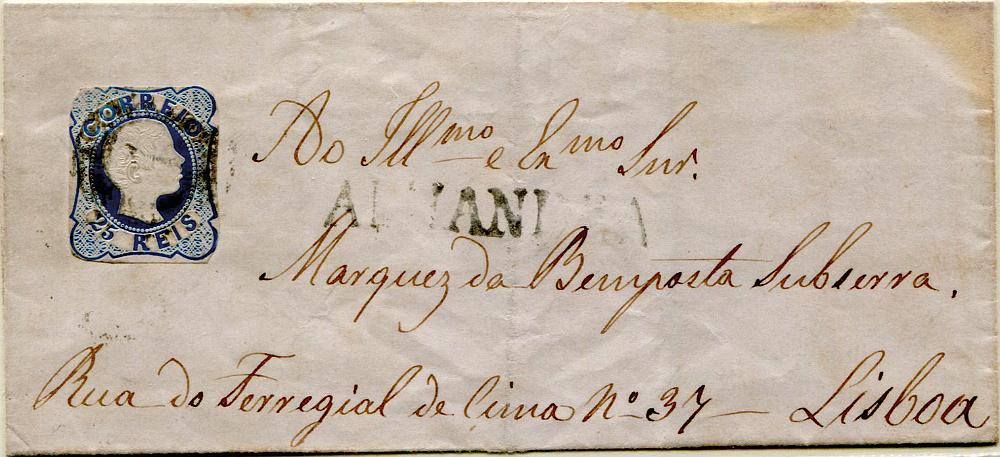 CORREIO
25 REIS
Ao Illmo e Exmo Snr.
Marquez da Bemposta Subserra.
Rua do Ferregial de Cima No 37 — Lisboa